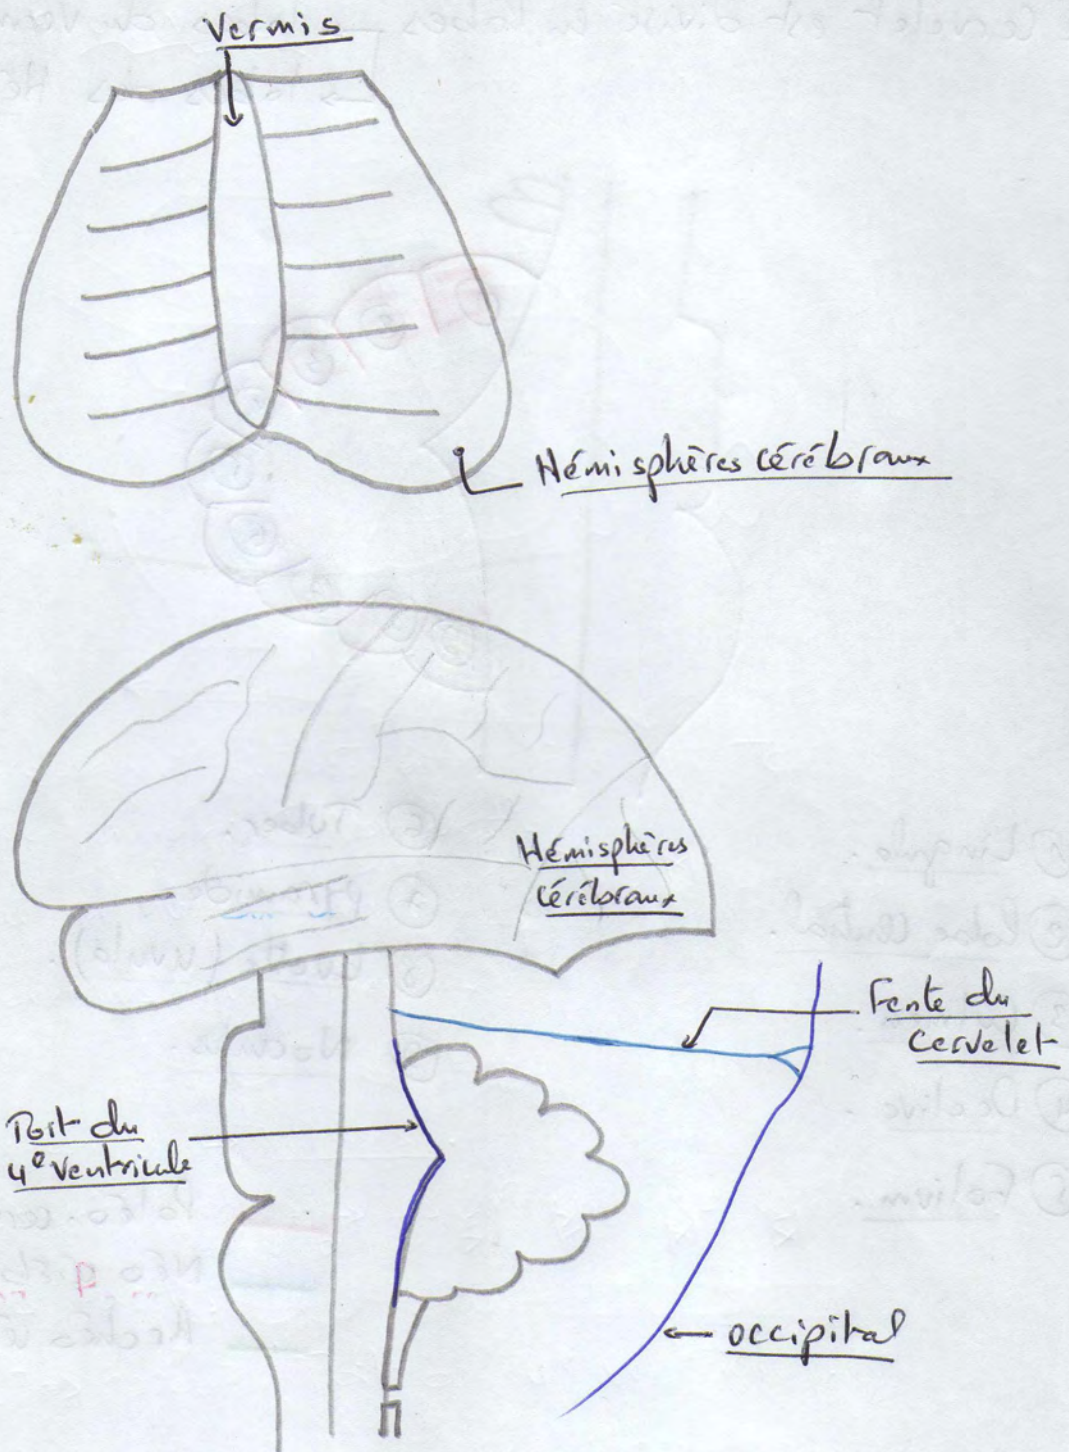 Vermis
Hémisphères cérébraux
Hémisphères
cérébraux
Fente du
Cervelet
Toit du
4e Ventricule
occipital